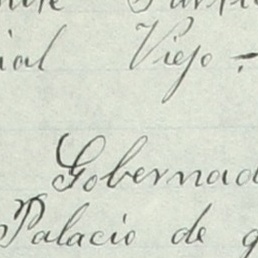 ial Viejo -
Gobernad
Palacio de g